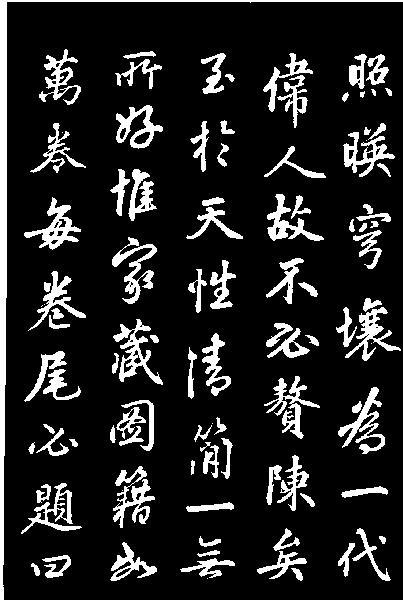 照暎穹壤為一代
偉人故不必贅陳矣
至於天性清簡一無
所好惟家藏圖籍
萬卷每卷尾必題曰